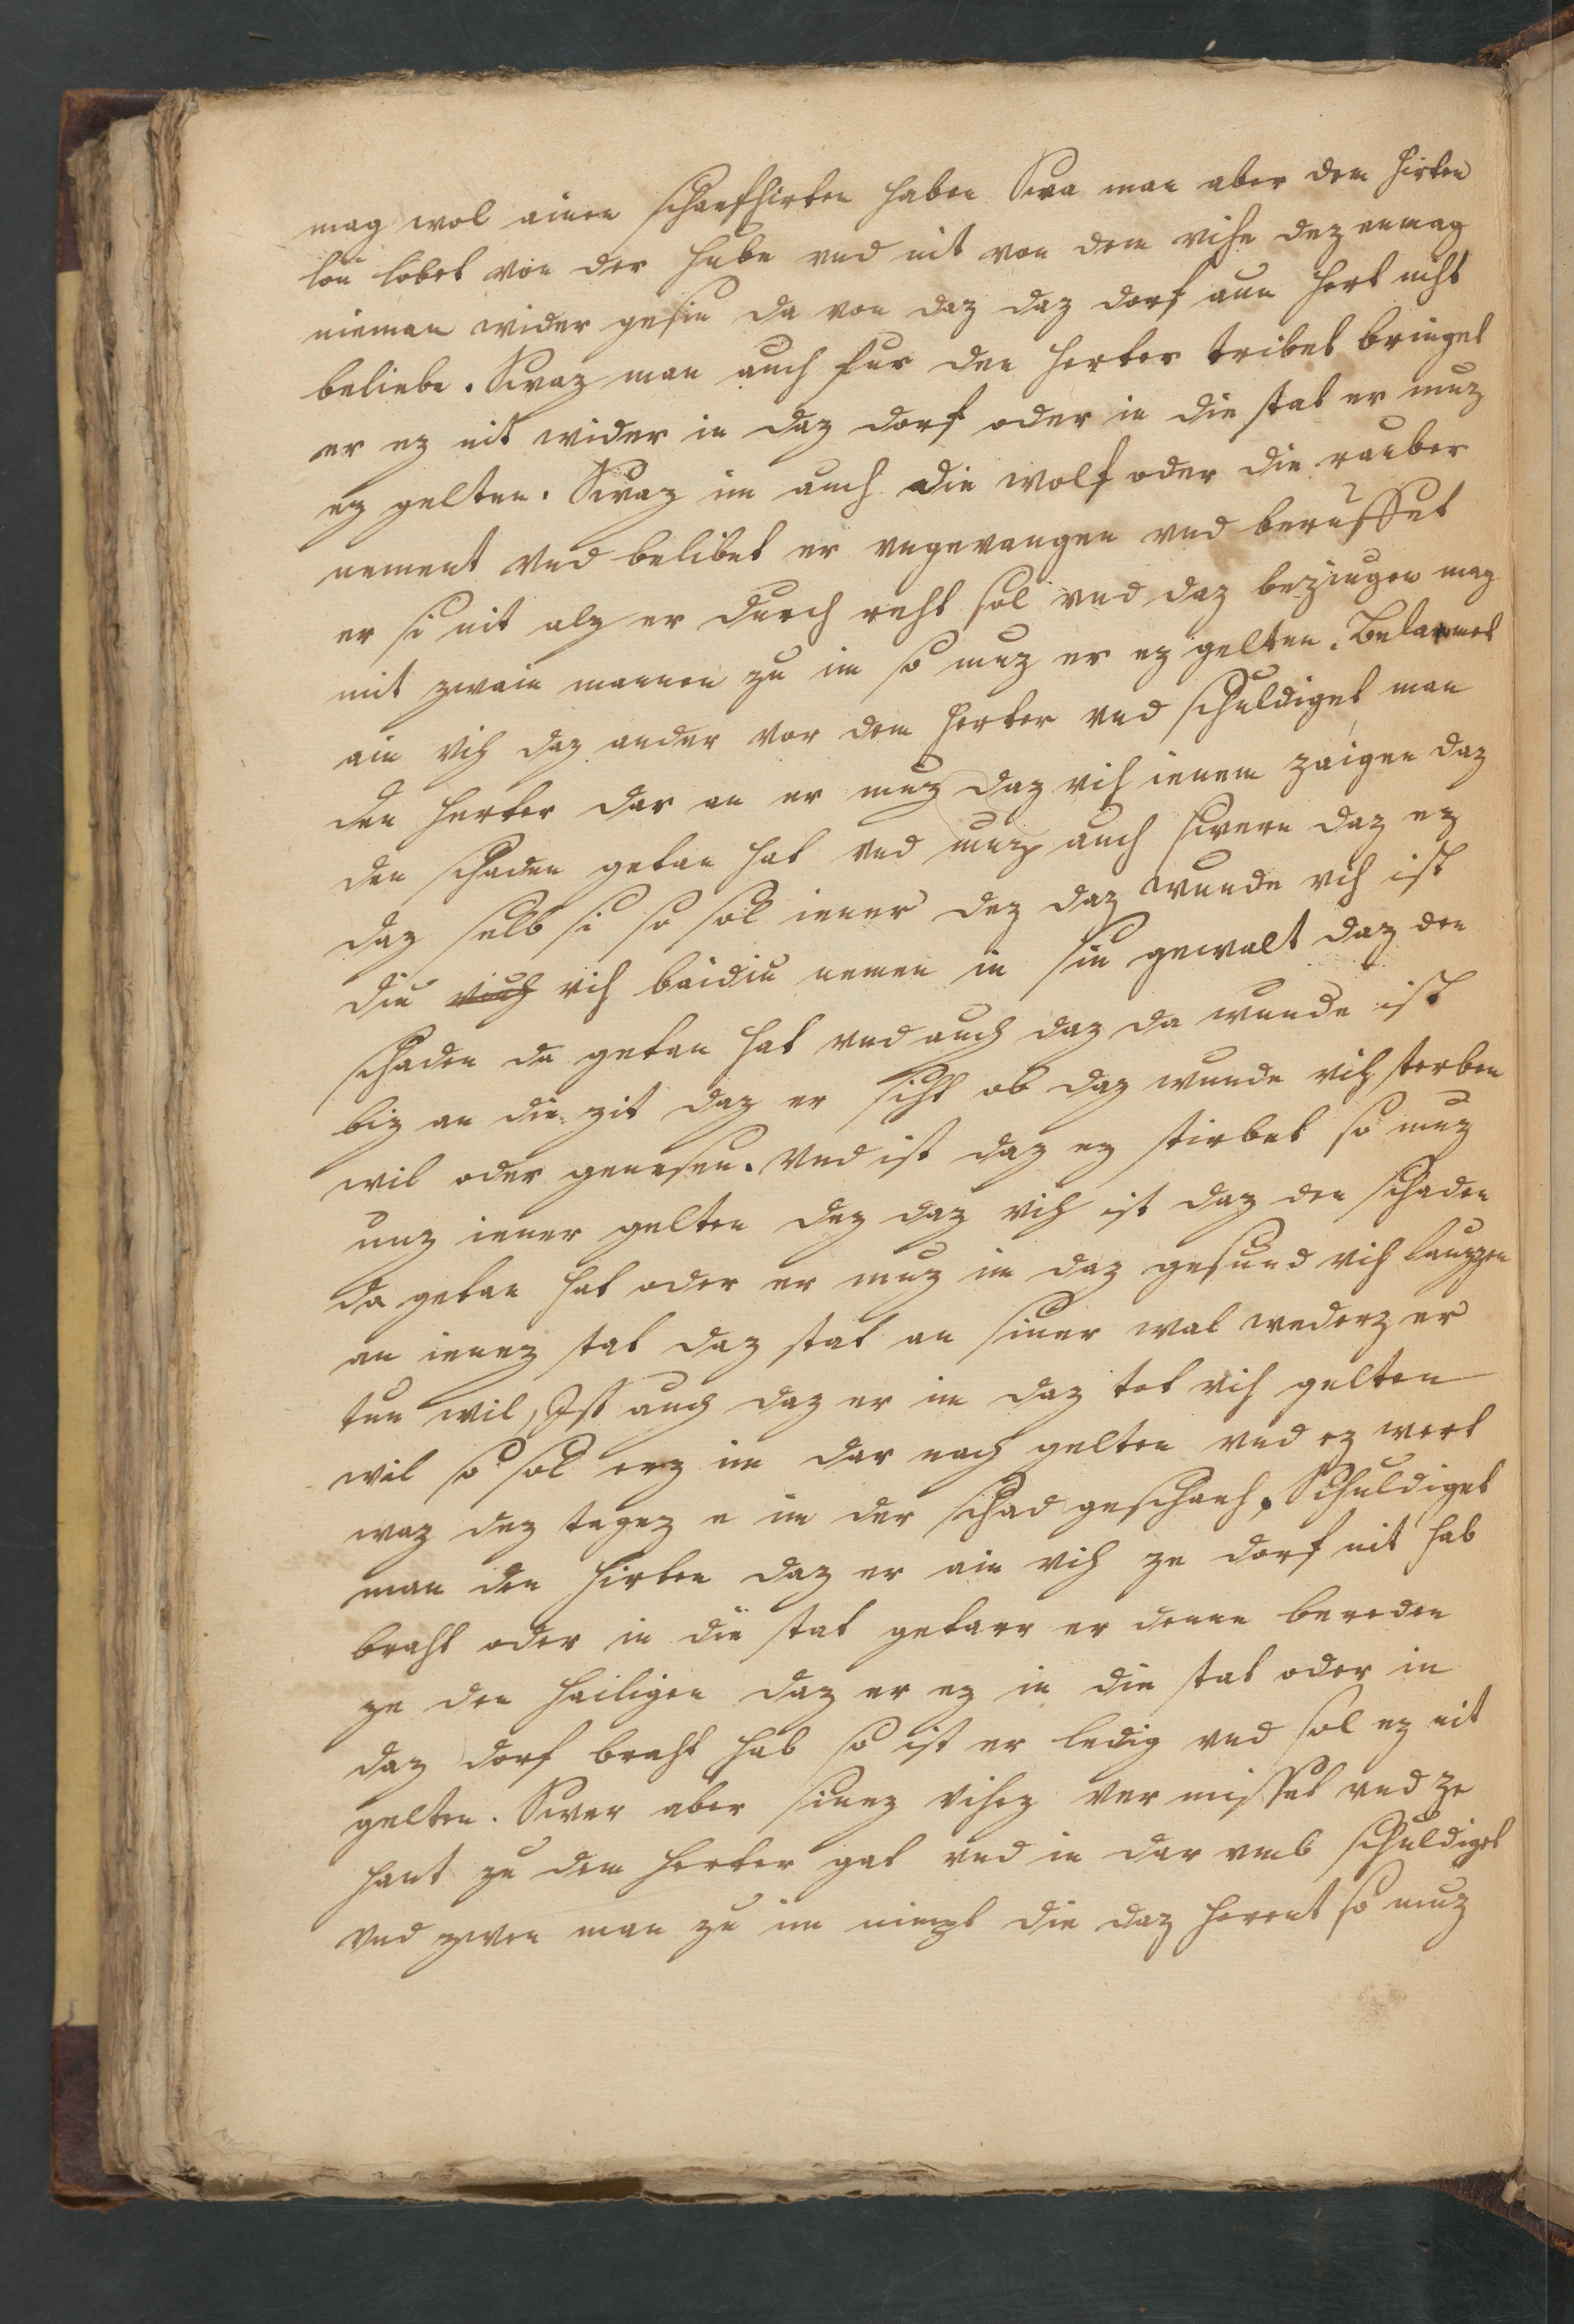 mag wol ainen schaefhirten haben Swa man aber dem hirten
lon lobet von der hube vnd nit von dem vihe dez enmag
nieman wider gesin da von daz daz dorf aun hert niht
belibe. Swaz man auch fur den herter tribet bringet
er ez nit wider in daz dorf oder in die stat er muz
ez gelten. Swaz im auch die wolf oder die rauber
nement vnd belibet er vngevangen vnd beruffet
er si nit alz er durch reht sol vnd daz bezingen mag
mit zwain mannen zu im so muz er ez gelten. Belammet
ain vih daz ander vor dem herter vnd schuldiget man
den herter dar an er muz daz vih ienem zaigen daz
den schaden getan hat vnd muz auch swern daz ez
daz selb si so sol iener dez daz wunde vih ist
diu vich vih baidiu nemen in sin gewalt daz den
schaden da getan hat vnd auch daz da wunde ist
biz an die zit daz er siht ob daz wunde vih sterben
wil oder genesen. Vnd ist daz ez stirbet so muz
unz iener gelten dez daz vih ist daz den schaden
da getan hat oder er muz im daz gesund vih lauzzen
an ienez stat daz stat an siner wal wederz er
tun wil, Ist auch daz er im daz tot vih gelten
wil so sol erz im dar nach gelten vnd ez wert
waz dez tagez e im der schad geschaeh, Schuldiget
man den hirten daz er ain vih ze dorf nit hab
braht oder in die stat getarr er denne bereden
ze den hailigen daz er ez in die stat oder in
daz dorf braht hab so ist er ledig vnd sol ez nit
gelten. Swer aber sinez vihez ver misset vnd ze
hant zu dem herter gat vnd in dar vmb schuldiget
vnd zwen man zu im nimpt die daz horent so muz